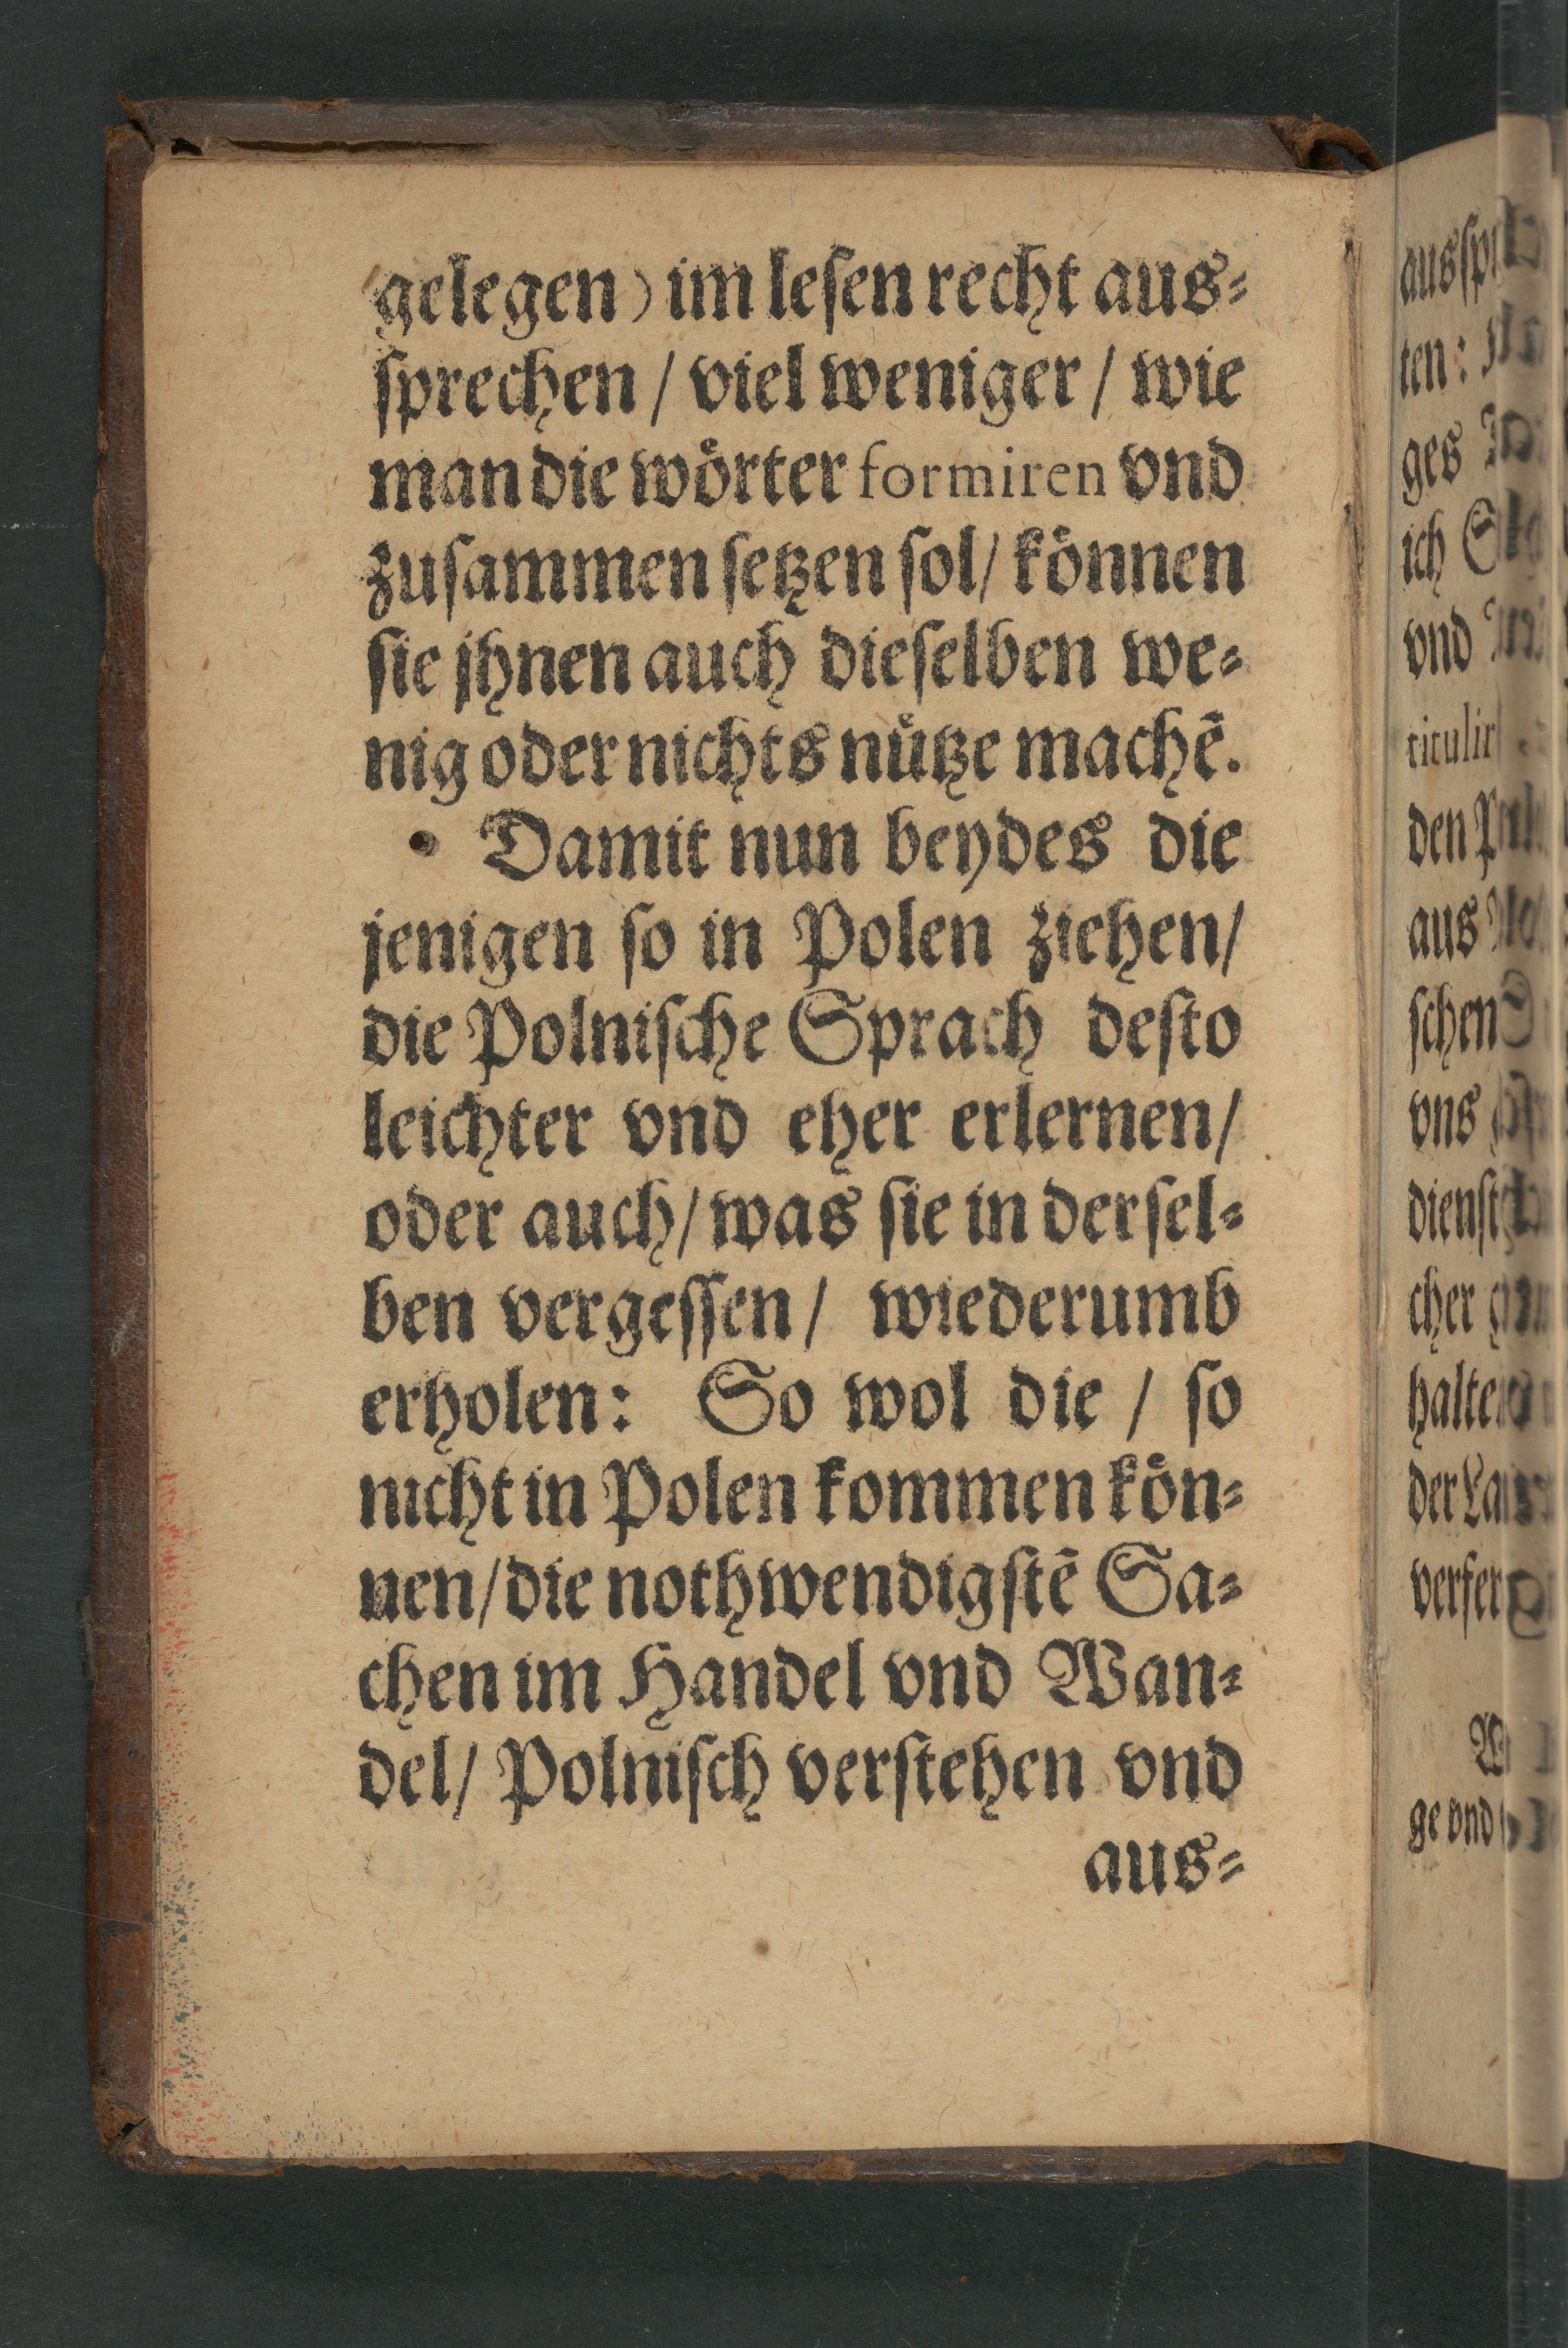 gelegen) im leſen recht aus⸗
ſprechen / viel weniger / wie
man die woͤrter formiren vnd
zuſammen ſetzen ſol / koͤnnen
ſie jhnen auch dieſelben we⸗
nig oder nichts nuͤtze machē.
Damit nun beydes die
jenigen ſo in Polen ziehen /
die Polniſche Sprach deſto
leichter vnd eher erlernen /
oder auch / was ſie in derſel⸗
ben vergeſſen / wiederumb
erholen: So wol die / ſo
nicht in Polen kommen koͤn⸗
nen / die nothwendigſtē Sa⸗
chen im Handel vnd Wan⸗
del / Polniſch verſtehen vnd
aus⸗
ten:
ges
ich
vnd
den
aus
ſchen
vns
cher
ge vnd